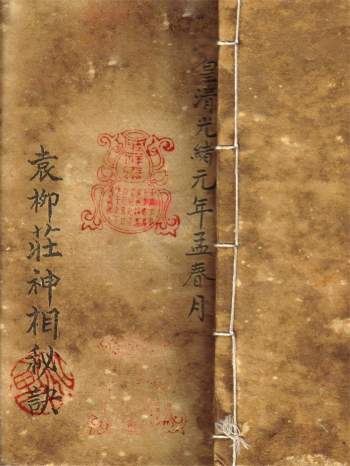 皇清光緒元年孟春月
袁柳莊神相秘訣